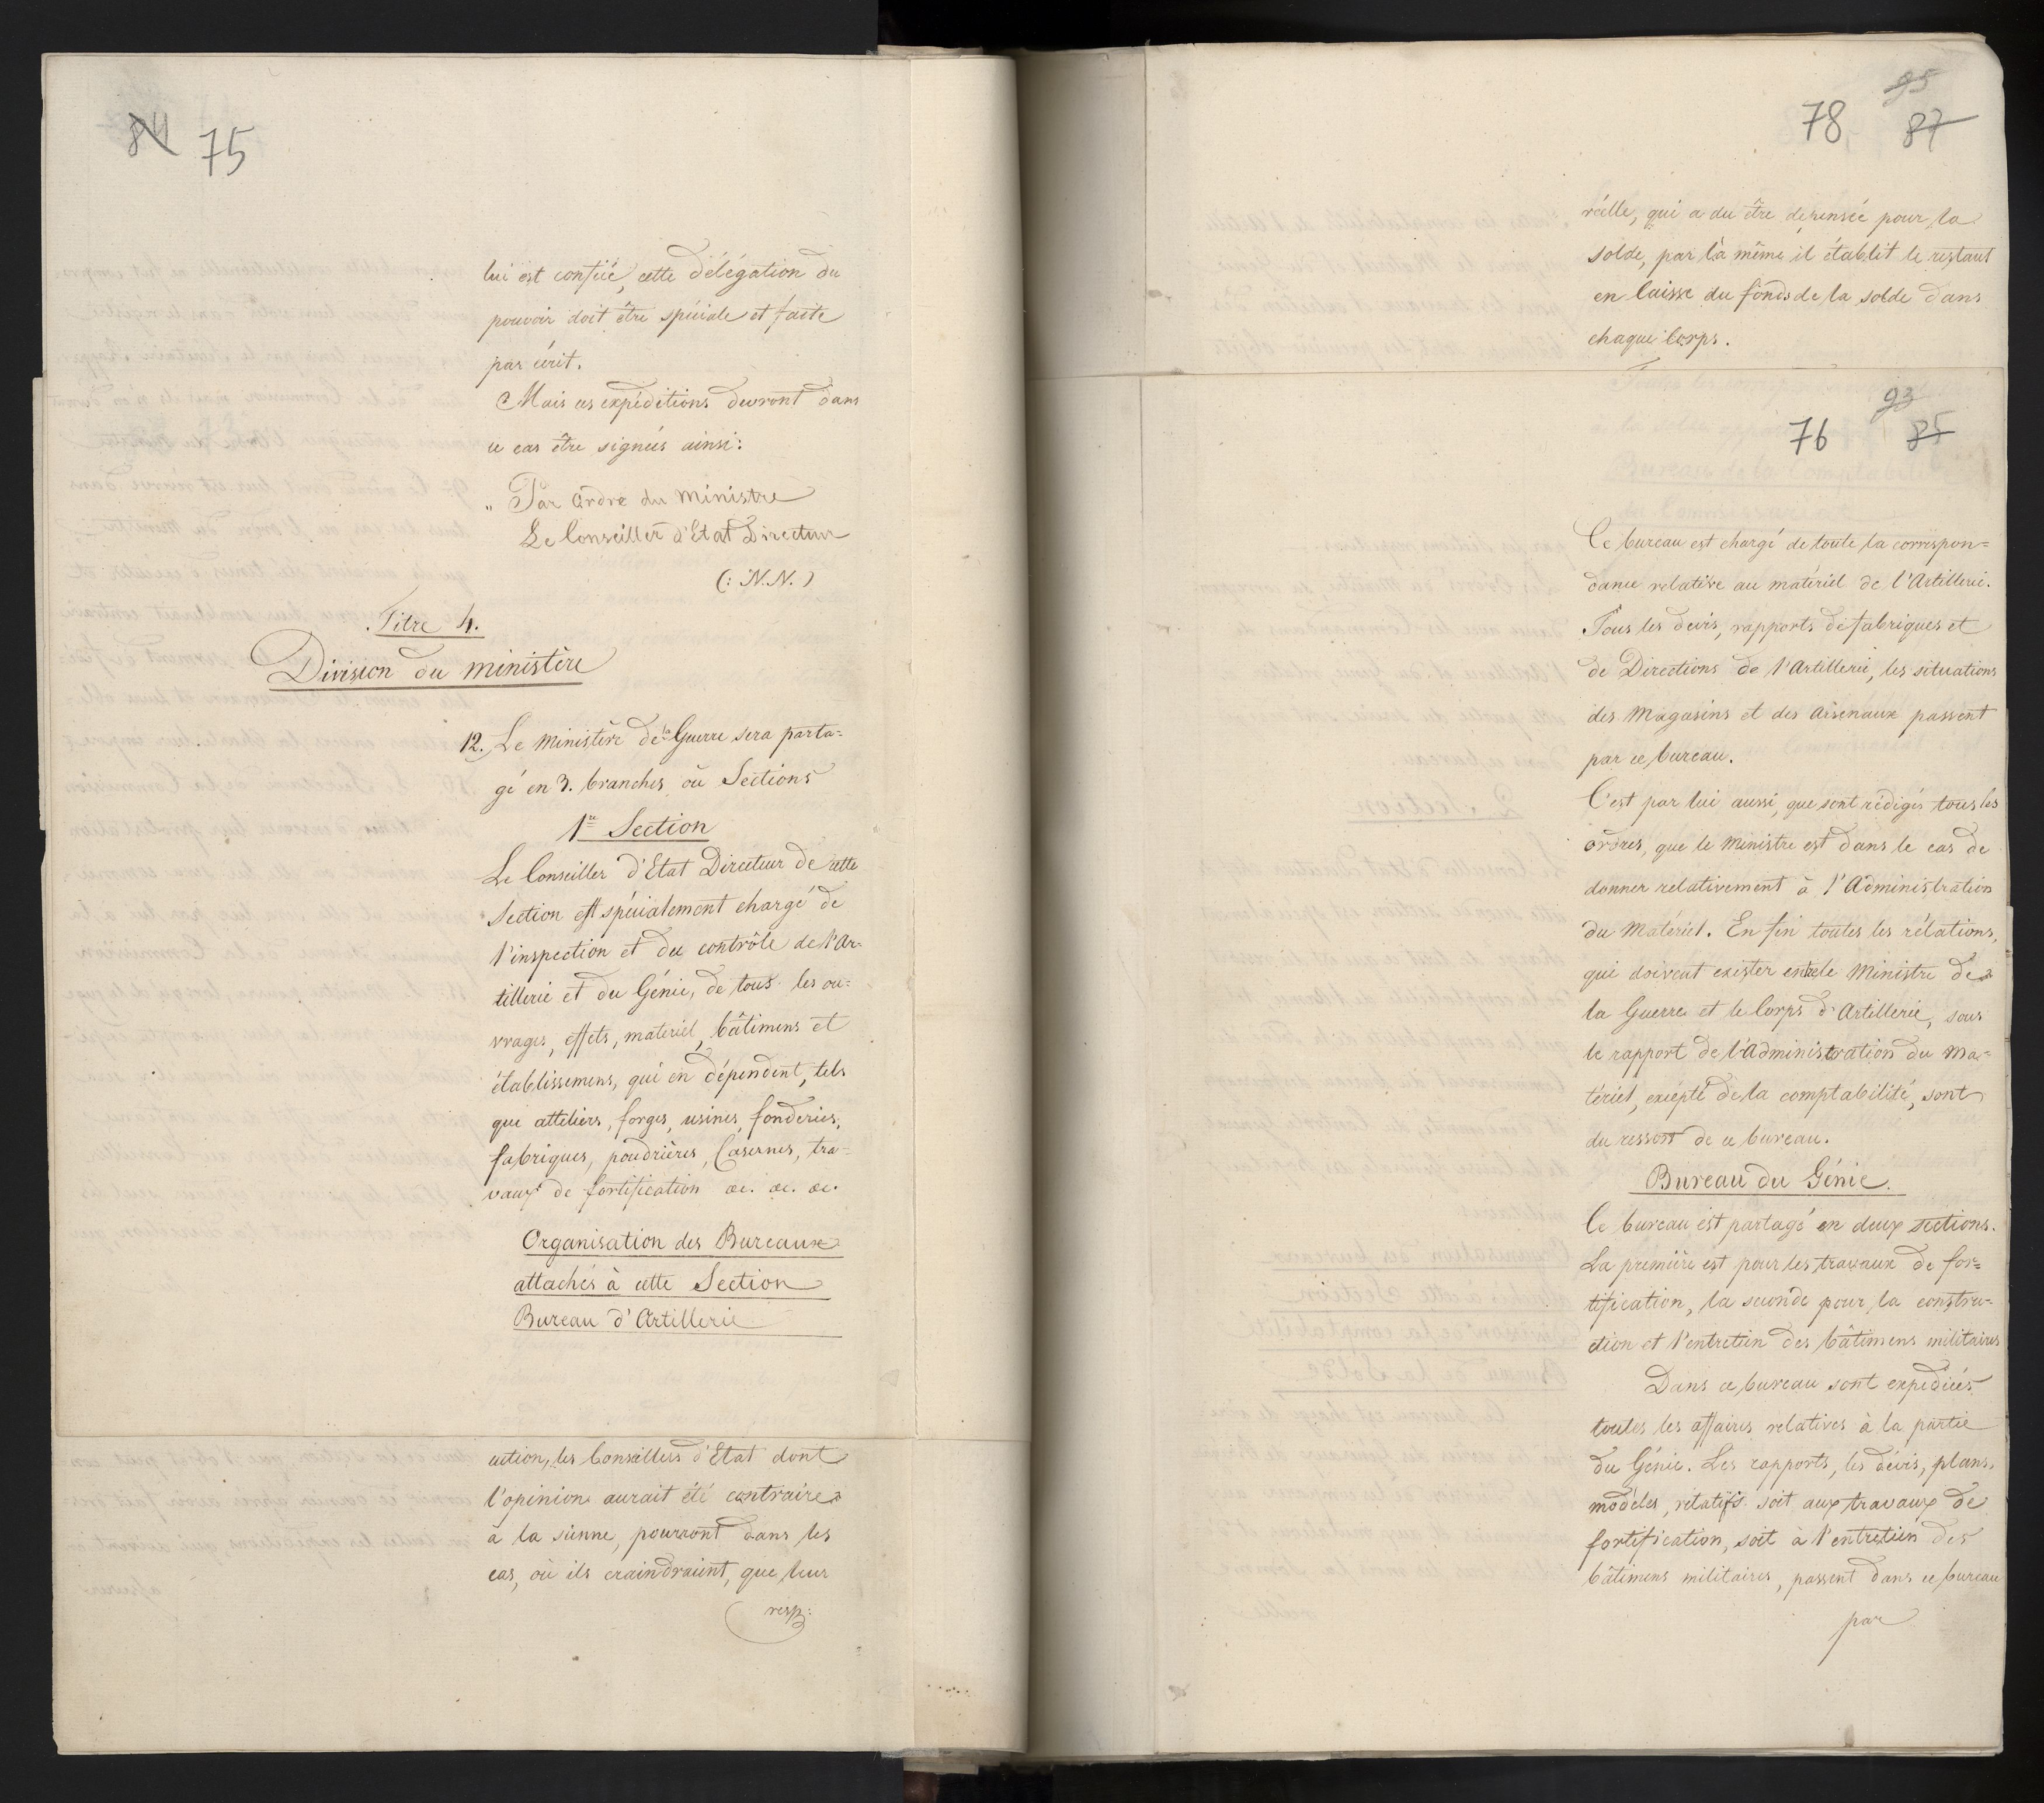 84 75
lui est confiée, cette délégation du
pouvoir doit être spéciale et faite
par écrit.
Mais ces expéditions devront dans
ce cas être signées ainsi:
„ Par ordre du ministre
Le Conseiller d'Etat Directeur
(: N. N. )
Titre 4.
Division du ministère
12. Le Ministère de la Guerre sera parta=
gé en 3. branches ou Sections
1re Section
Le Conseiller d'Etat Directeur de cette
Section est spécialement chargé de
l'inspection et du contrôle de l'Ar=
tillerie et du Génie, de tous les ou=
vrages, effets, materiel, bâtimens et
établissemens, qui en dépendent, tels
que atteliers, forges, usines, fonderies,
fabriques, poudrières, Casernes, tra=
vaux de fortification &c. &c. &c.
Organisation des Bureaux
attachés à cette Section
Bureau d'Artillerie
action, les Conseillers d'Etat dont
l'opinion aurait été contraire
à la sienne, pourront dans les
cas, où ils craindraient, que leur
resp:
95
78 87
réelle, qui a du être depensée pour la
solde, par là même il établit le restant
en Caisse du fonds de la solde dans
chaque Corps.
93
76 85
Ce bureau est chargé de toute la correspon=
dance relative au matériel de l'Artillerie.
Tous les devis, rapports de fabriques et
de Directions de l'Artillerie, les situations
des Magasins et des Arsenaux passent
par ce bureau.
C'est par lui aussi, que sont rédigés tous les
ordres, que le Ministre est dans le cas de
donner relativement à l'Administration
du Matériel. En fin toutes les rélations,
qui doivent exister entre le Ministre de
la Guerre et le Corps d'Artillerie, sous
le rapport de l'Administration du Ma=
tériel, excepté de la comptabilité, sont
du ressort de ce bureau.
Bureau du Génie.
Ce bureau est partagé en deux sections.
La première est pour les travaux de for=
tification, la seconde pour la constru=
ction et l'entretien des bâtimens militaires
Dans ce bureau sont expediées
toutes les affaires relatives à la partie
du Génie. Les rapports, les dévis, plans,
modèles, rélatifs soit aux travaux de
fortification, soit à l'entretien des
bâtimens militaires, passent dans ce bureau
par